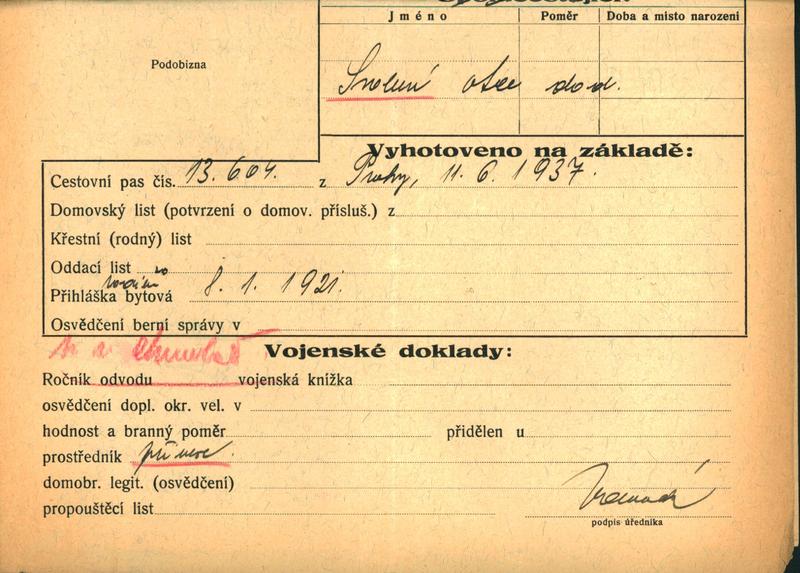 Jméno Poměr Doba a místo narození
Podobizna
otce dod.
Vyhotoveno na základě:
Cestovní pas čís. 13.604. z Prahy, 11. 6. 1937.
Domovský list (potvrzení o domov. přísluš.) z
Křestní (rodný) list
Oddací list
Přihláška bytová 8. 1. 1921.
Osvědčení berní správy v
Vojenské doklady:
Ročník odvodu vojenská knížka
osvědčení dopl. okr. vel. v
hodnost a branný poměr přidělen u
prostředník
domobr. legit. (osvědčení)
propouštěcí list
podpis úředníka